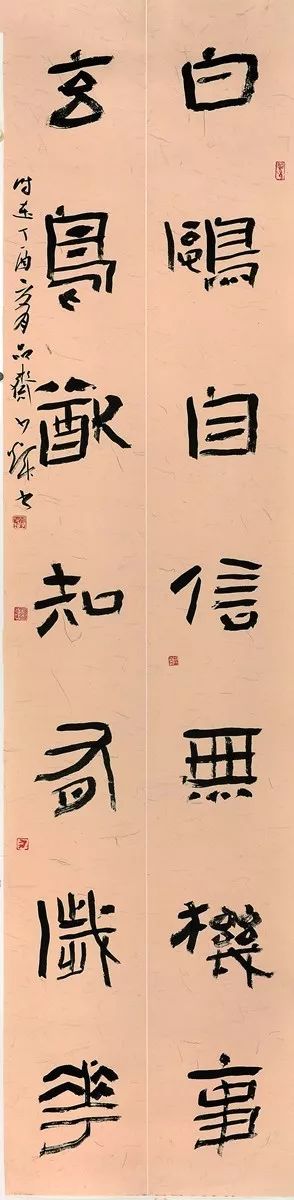 白鷗自信無機事
玄鳥猷知有歲華
丁酉月品齋